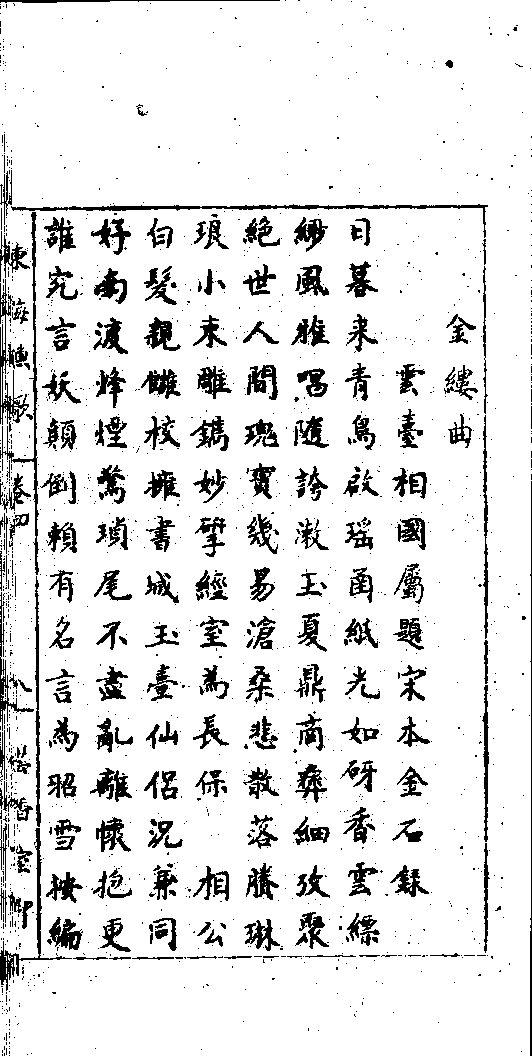 金縷曲
雲臺相國屬題宋本金石錄
日暮来青鳥啟瑶函紙光如砑香雲縹
緲風雅唱隨誇漱玉夏鼎商彝細攷聚
絶世人間瑰寶幾易滄桑悲散落賸琳
琅小朿雕鐫妙揅經室為長保　相公
白髪親讎校擁書城玉臺仙侣况兼同
好南渡烽煙驚瑣尾不盡亂離懷抱更
誰究言妖顛倒賴有名言為昭雪按編
東海漁歌
卷四
八
室